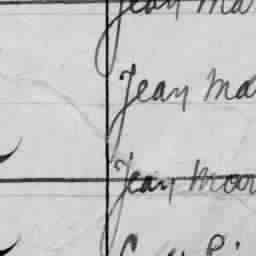 Jean Ma
Jean Ma
Jean Moor